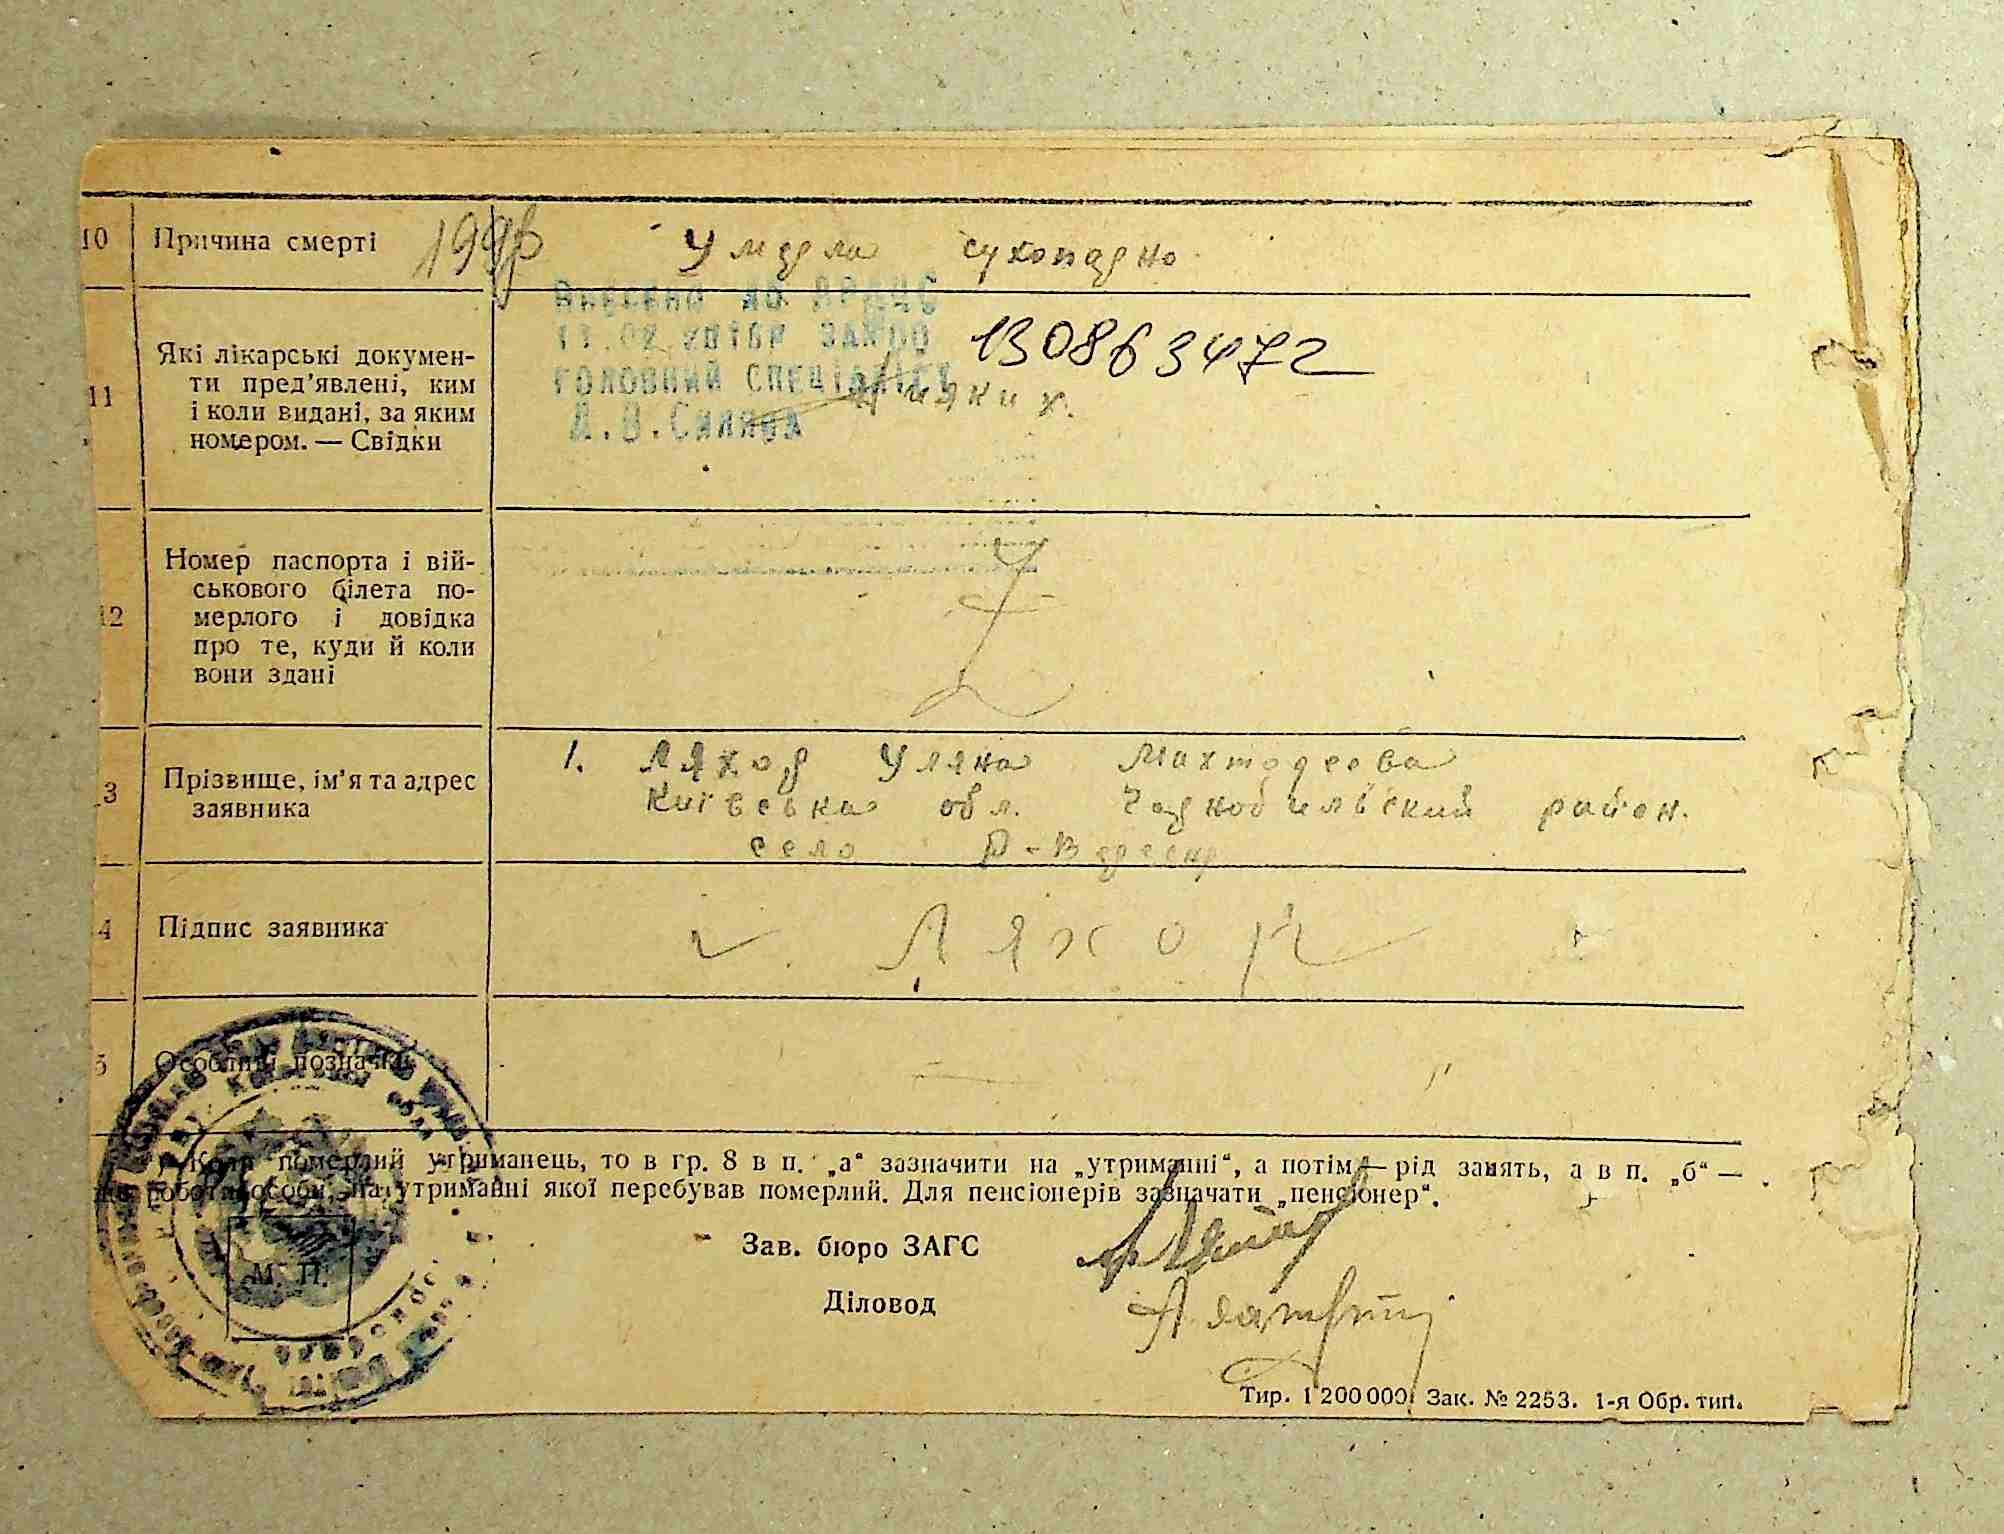 10 Причина смерті Умерла
11 Які лікарські докумен-
ти пред'явлені, ким
і коли видані, за яким
номером. — Свідки
Внесено до ДРАЦС
ГОЛОВНИЙ СПЕЦІАЛІСТ
130863472
ніяких.
12 Номер паспорта і вій-
ськового білета по-
мерлого і довідка
про те, куди й коли
вони здані
3 Прізвище, ім'я та адрес
заявника
1. Ляхор Уляна
Київська обл. Чорнобильский район.
село
4 Підпис заявника
Ляхор
5 Особливі позначки
Коли померлий утриманець, то в гр. 8 в п. „а“ зазначити на „утриманні“, а потім — рід занять, а в п. „б“ —
роботи особи, на утриманні якої перебував померлий. Для пенсіонерів зазначати „пенсіонер“.
Зав. бюро ЗАГС
М. П.
Діловод
Тир. 1 200 000. Зак. № 2253. 1-я Обр. тип.